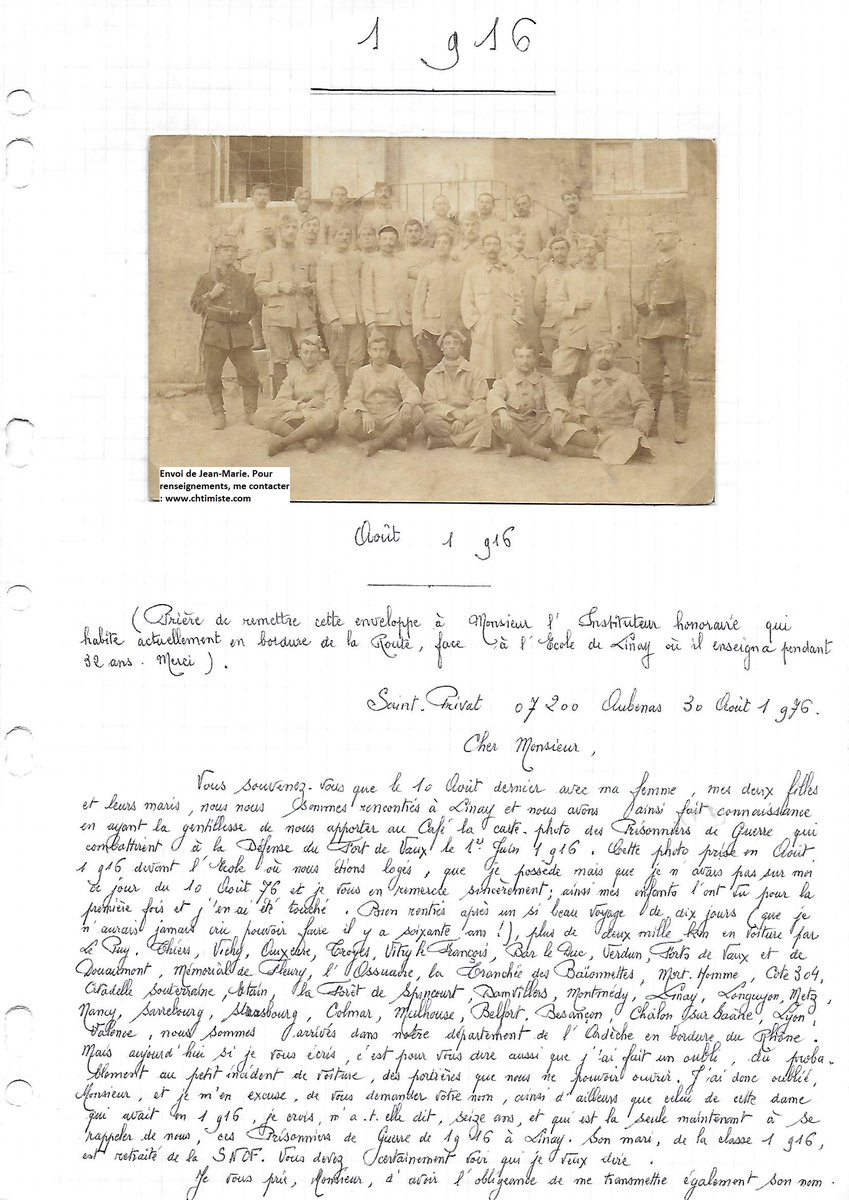 1 916
Envoi de Jean-Marie. Pour
renseignements, me contacter
: www.chtimiste.com
Août 1 916
(Prière de remettre cette enveloppe à Monsieur l'Instituteur honoraire qui
habite actuellement en bordure de la Route, face à l'Ecole de Linay où il enseigna pendant
32 ans. Merci).
Saint-Privat 07200 Aubenas 30 Août 1 976.
Cher Monsieur,
Vous souvenez-vous que le 10 Août dernier avec ma femme, mes deux filles
et leurs maris, nous nous sommes rencontrés à Linay et nous avons ainsi fait connaissance
en ayant la gentillesse de nous apporter au Café la carte-photo des Prisonniers de Guerre qui
combattirent à la Défense du Fort de Vaux le 1er Juin 1 916. Cette photo prise en Août
1 916 devant l'Ecole où nous étions logés, que je possède mais que je n'avais pas sur moi
ce jour du 10 Août 76 et je vous en remercie sincèrement; ainsi mes enfants l'ont vu pour la
première fois et j'en ai été touché. Bien rentrés après un si beau voyage de dix jours (que je
n'aurais jamais cru pouvoir faire il y a soixante ans!), plus de deux mille km en voiture par
Le Puy, Thiers, Vichy, Auxerre, Troyes, Vitry le François, Bar le Duc, Verdun, Forts de Vaux et de
Douaumont, Mémorial de Fleury, l'Ossuaire, la Tranchée des Baïonnettes, Mort-Homme, Cote 304,
Citadelle Souterraine, Etain, la Forêt de Spincourt, Damvillers, Montmédy, Linay, Longuyon, Metz,
Nancy, Sarrebourg, Strasbourg, Colmar, Mulhouse, Belfort, Besançon, Châlon sur Saône, Lyon,
Valence, nous sommes arrivés dans notre département de l'Ardèche en bordure du Rhône.
Mais aujourd'hui si je vous écris, c'est pour vous dire aussi que j'ai fait un oubli, dû proba-
blement au petit incident de voiture, des portières que nous ne pouvoir ouvrir. J'ai donc oublié,
Monsieur, et je m'en excuse, de vous demander votre nom, ainsi d'ailleurs que celui de cette dame
qui avait en 1 916, je crois, m'a-t-elle dit, seize ans, et qui est la seule maintenant à se
rappeler de nous, ces Prisonniers de Guerre de 19 16 à Linay. Son mari, de la classe 1 916,
est retraité de la SNCF. Vous devez certainement voir qui je veux dire.
Je vous prie, Monsieur, d'avoir l'obligeance de me transmettre également son nom.